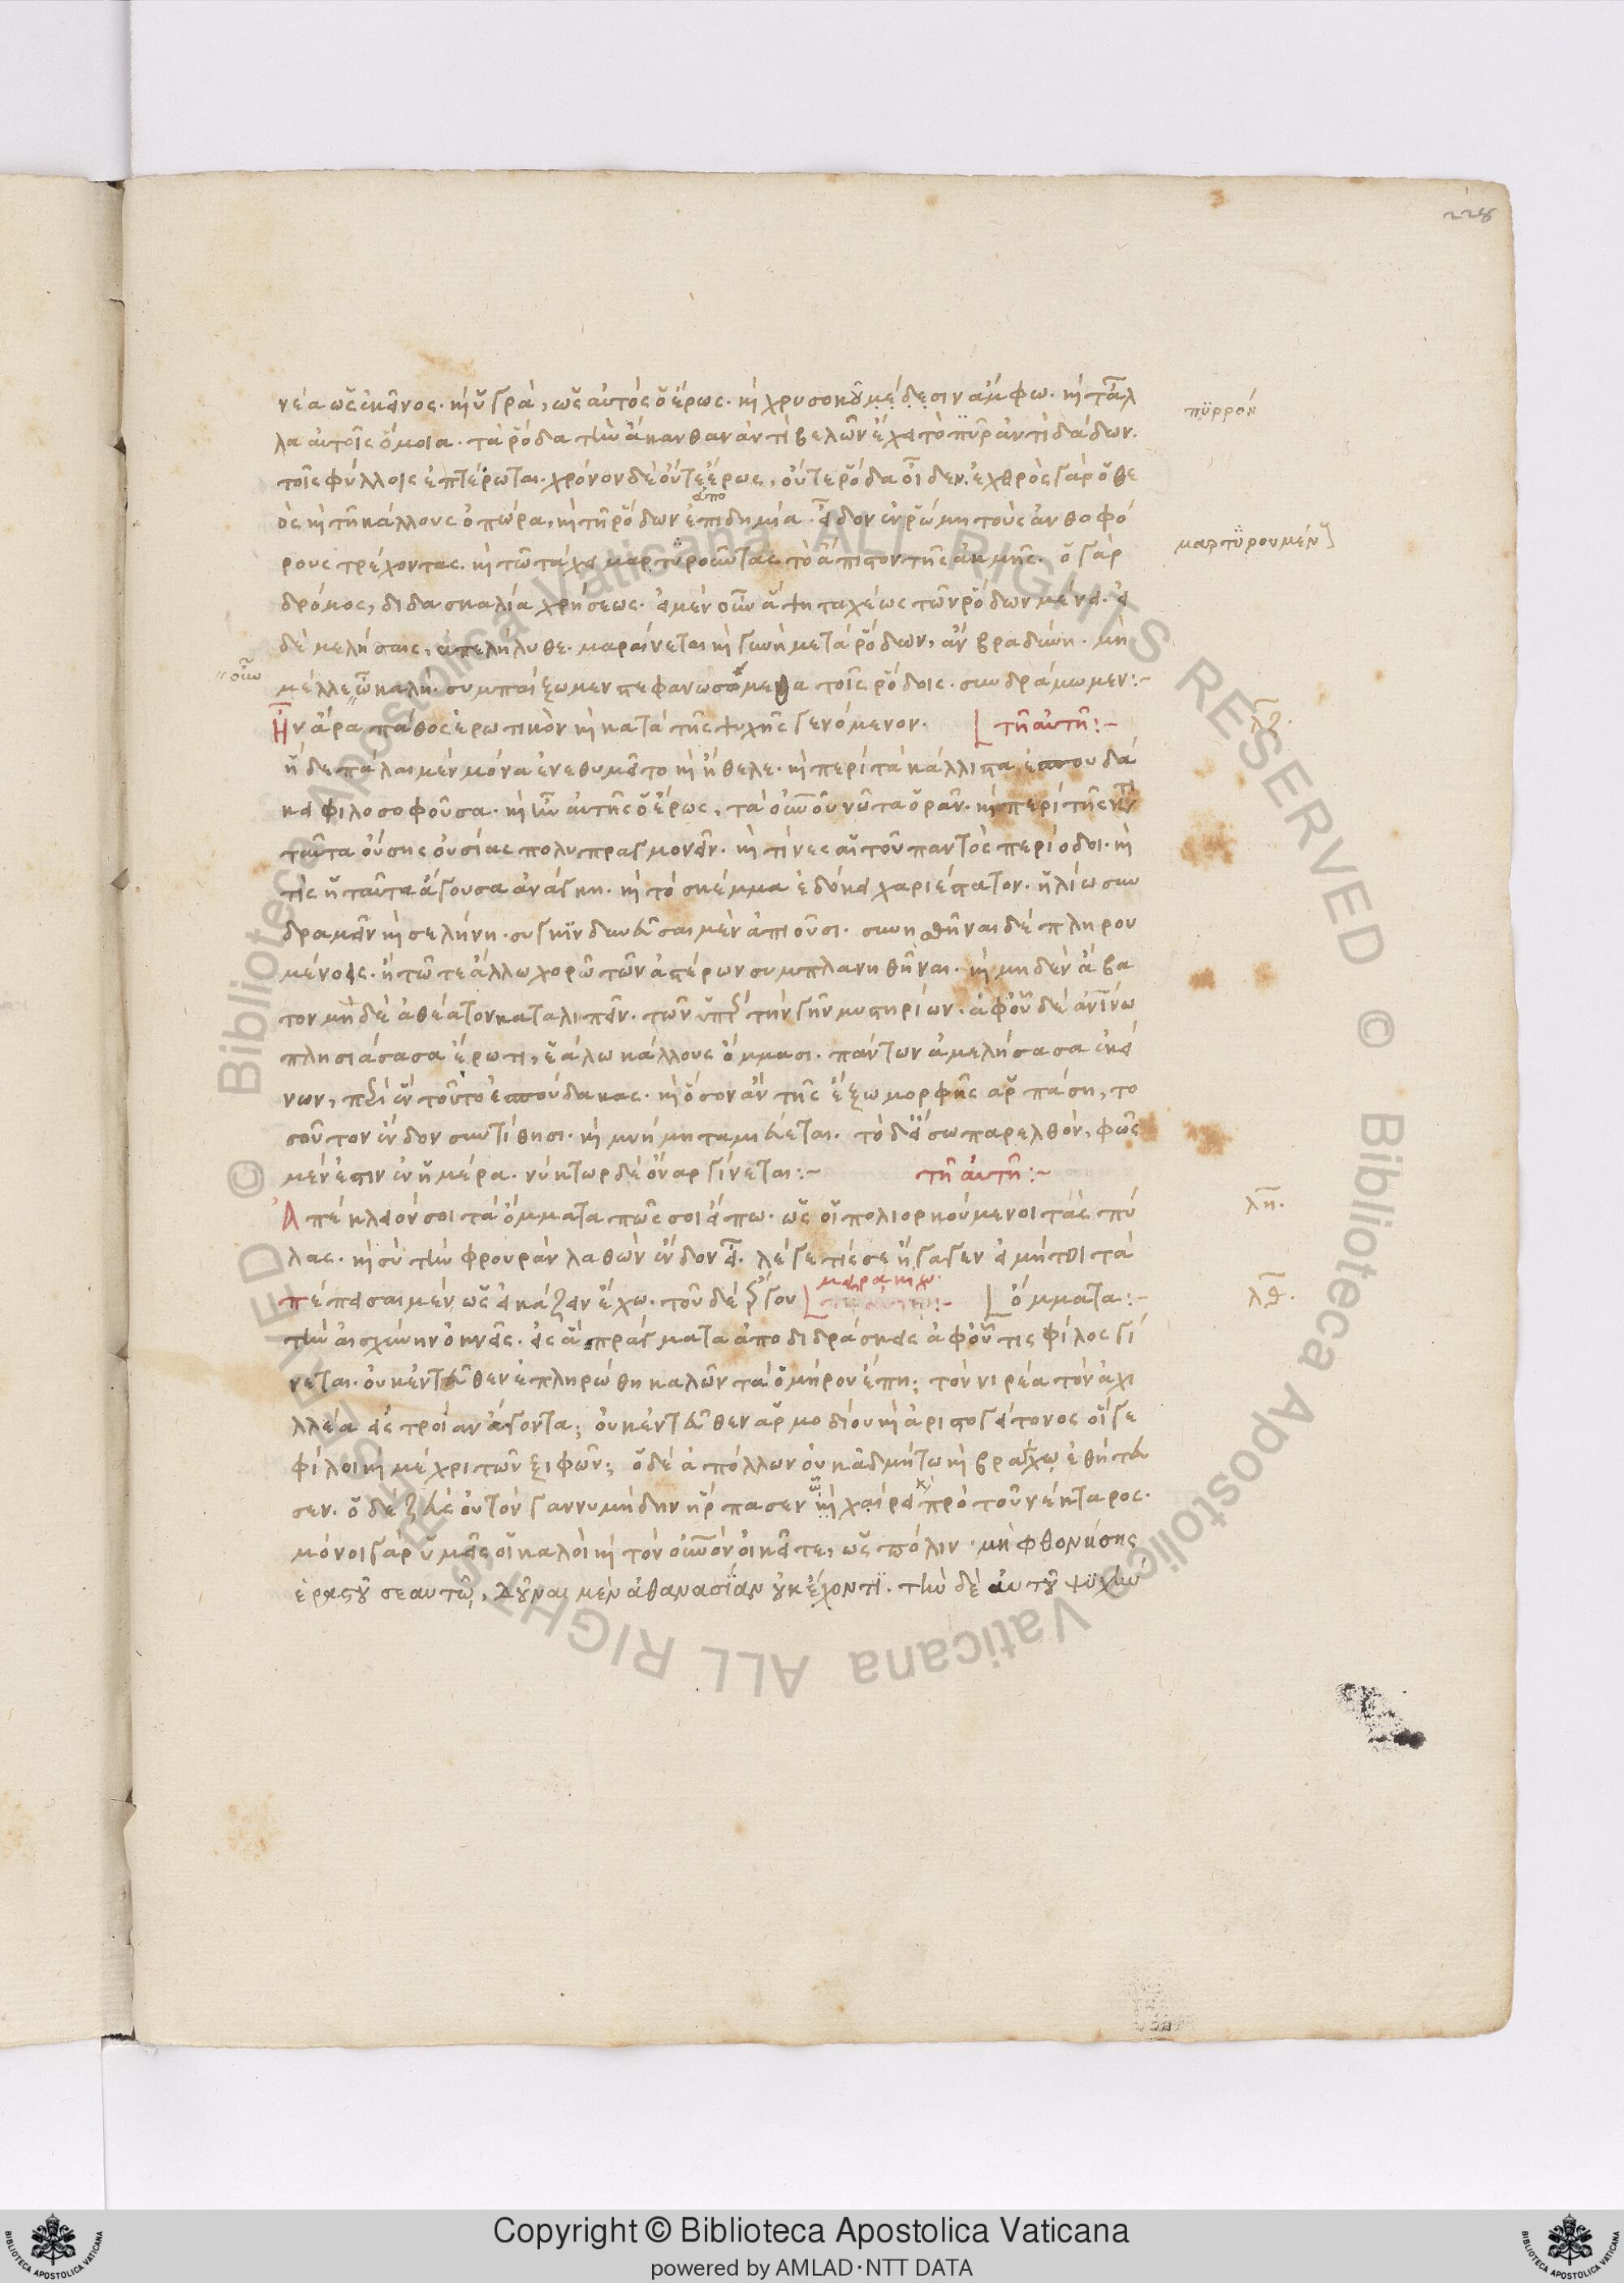 228
νέα ὡς ἐκεῖνος. καὶ ὑγρὰ, ὡς αὐτὸς ὁ ἔρως. καὶ χρυσοκομεδεσιν ἄμφω. καὶ τἆλ
πϋρρόν
λα αὐτοῖς ὅμοια. τὰ ῥόδα τὴν ἄκανθαν ἀντὶ βελῶν ἔχει τὸ πῦρ ἀντὶ δάδων.
τοῖς φύλλοις ἐπτέρωται. χρόνον δὲ οὔτε ἔρως, οὔτε ῥόδα οἶδεν. ἐχθρὸς γὰρ ὁ θε
ἀπο
ὸς καὶ τῇ κάλλους ὀπώρα, καὶ τῇ ῥόδων ἐπιδημία. εἶδον ἐν ῥώμη τοὺς ἀνθοφό
μαρτϋρουμέν
ρους τρέχοντας. καὶ τῶ τάχει μαρτυροῦντας τὸ ἄπιστον τῆς ἀκμῆς. ὁ γὰρ
δρόμος, διδασκαλία χρήσεως. εἰ μὲν οὖν ἅψη ταχέως τῶν ῥόδων μένει. εἰ
δὲ μελήσαις, ἀπελήλυθε. μαραίνεται καὶ γυνὴ μετὰ ῥόδων, ἂν βραδύνη. μὴ
οὖν
μέλλε ὦ καλή. συμπαίξωμεν στεφανωσόμεθα τοῖς ῥόδοις. συνδράμωμεν:-
Ἦν ἄρα πάθος ἐρωτικὸν καὶ κατὰ τῆς ψυχῆς γενόμενον. τῆ αὐτῆ:-
λζ.
ἥδε πάλαι μὲν μόνα ἐνεθυμεῖτο καὶ ἤθελε. καὶ περὶ τὰ κάλλιστα ἐσπουδά
κει φιλοσοφοῦσα. καὶ ἦν αὐτῆς ὁ ἔρως, τὰ οὐρανοῦ νῶτα ὁρᾶν. καὶ περὶ τῆς
ταῦτα οὔσης οὐσίας πολυπραγμονεῖν. καὶ τίνες αἱ τοῦ παντὸς περίοδοι. καὶ
τίς ἡ ταῦτα ἄγουσα ἀνάγκη. καὶ τὸ σκέμμα ἐδόκει χαριέστατον. ἡλίω συν
δραμεῖν καὶ σελήνη. συγκινδυνεῦσαι μὲν ἀπιοῦσι. συνησθῆναι δὲ πληρου
μένοις. ἢ τῶ τε ἄλλω χορῶ τῶν ἀστέρων συμπλανηθῆναι. καὶ μηδὲν ἄβα
τον μηδὲ ἀθέατον καταλιπεῖν. τῶν ὑπὲρ τὴν γῆν μυστηρίων. ἀφοῦ δὲ ἀνθρωπίνω
πλησιάσασα ἔρωτι, ἑάλω κάλλους ὄμμασι. πάντων ἀμελήσασα ἐκεί
νων, περὶ ἓν τοῦτο ἐσπούδακας. καὶ ὅσον ἂν τῆς ἔξω μορφῆς ἁρπάση, το
σοῦτον ἔνδον συντίθησι. καὶ μνήμη ταμιεύεται. τὸ δ' εἴσω παρελθὸν, φῶς
μέν ἐστιν ἐν ἡμέρα. νύκτωρ δὲ ὄναρ γίνεται:- τῆ αὐτῆ:-
Ἀπέκλειόν σοι τὰ ὄμματα πῶς σοι εἴπω. ὡς οἱ πολιορκούμενοι τὰς πύ
λη.
λας. καὶ σὺ τὴν φρουρὰν λαθὼν ἔνδον εἶ. λέγε τίς σε ἤγαγεν εἰ μήτοι τὰ
μειρακίω.
πέπεισαι μὲν ὡς εἰκάζειν ἔχω. τοῦ δὲ ἔργου ὄμματα:-
λθ.
τὴν αἰσχύνην ὀκνεῖς. εἰς ἃ πράγματα ἀποδιδράσκεις ἀφοῦ τις φίλος γί
νεται. οὐκ ἐντεῦθεν ἐπληρώθη καλῶν τὰ ὁμήρου ἔπη; τὸν νιρέα τὸν ἀχι
λλέα εἰς τροίαν ἄγοντα; οὐκ ἐντεῦθεν ἁρμοδίου καὶ ἀριστογείτονος οἵ γε
φίλοι καὶ μέχρι τῶν ξιφῶν; ὁ δὲ ἀπόλλων οὐκ ἀδμήτω καὶ βράγχω ἐθήτευ
σεν. ὁ δὲ ζεὺς οὐ τὸν γαννυμήδην ἥρπασεν ὧ καὶ χαίρει πρὸ τοῦ νέκταρος.
μόνοι γὰρ ὑμεῖς οἱ καλοὶ καὶ τὸν οὐρανὸν οἰκεῖτε, ὡς πόλιν. μὴ φθονήσης
ἐραστοῦ σεαυτῶ, δοῦναι μὲν ἀθανασίαν οὐκ ἔχοντι. τὴν δὲ αὐτοῦ ψϋχὴν
Copyright © Biblioteca Apostolica Vaticana
powered by AMLAD·NTT DATA